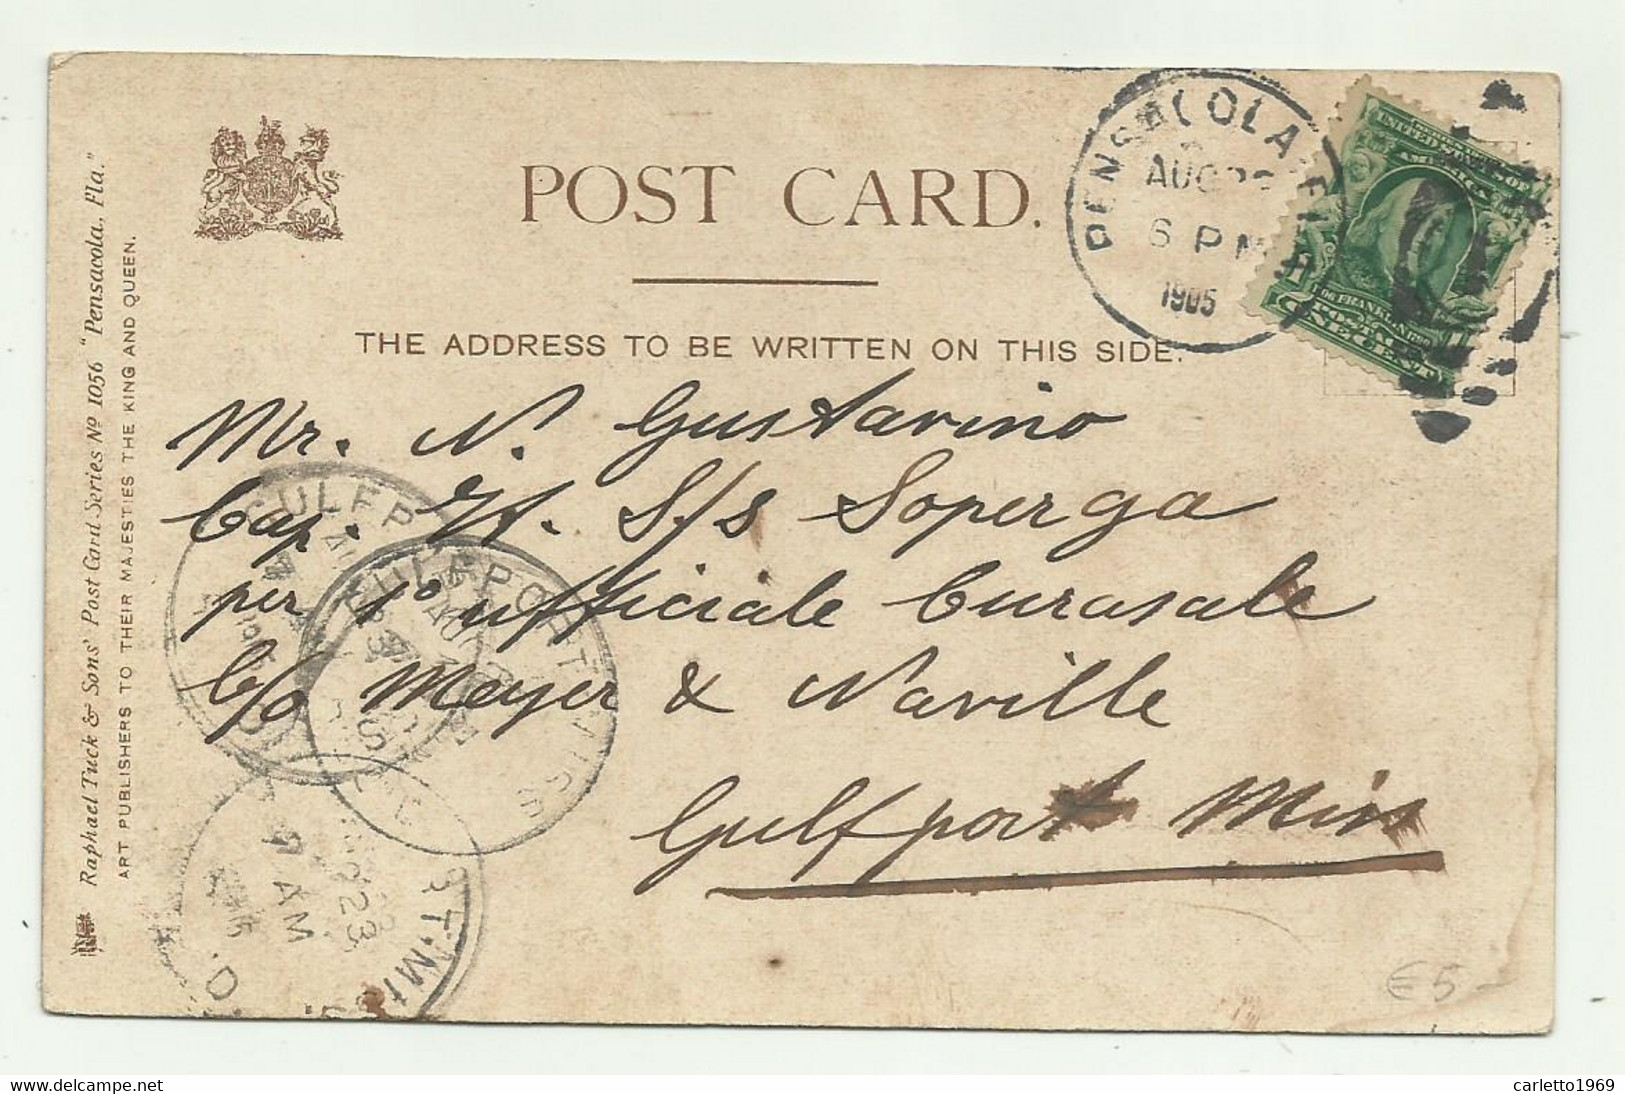 POST CARD.
THE ADDRESS TO BE WRITTEN ON THIS SIDE.
Raphael Tuck & Sons' Post Card Series No 1056 "Pensacola, Fla."
ART PUBLISHERS TO THEIR MAJESTIES THE KING AND QUEEN.
PENSACOLA
AUG
6 PM
1905
UNITED STATES OF
AMERICA
FRANKLIN
POSTAGE
ONE CENT
Mr. N. Gustavino
Cap. S/s Soperga
per 1º ufficiale Curasale
C/o Meyer & Naville
Gulfport Miss
GULFPORT
MISS
23
7 AM
€5-
carletto1969